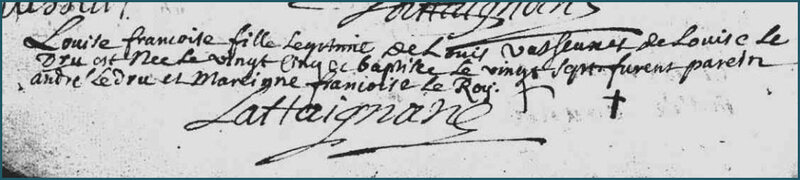 Lattaignan
Louise francoise fille legitime de Louis Vasseur et de Louise le
Dru est Nee le vingt cinq et baptisee le vingt sept furent parein
andré Ledru et Mareigne francoise le Roy.
Lattaignan